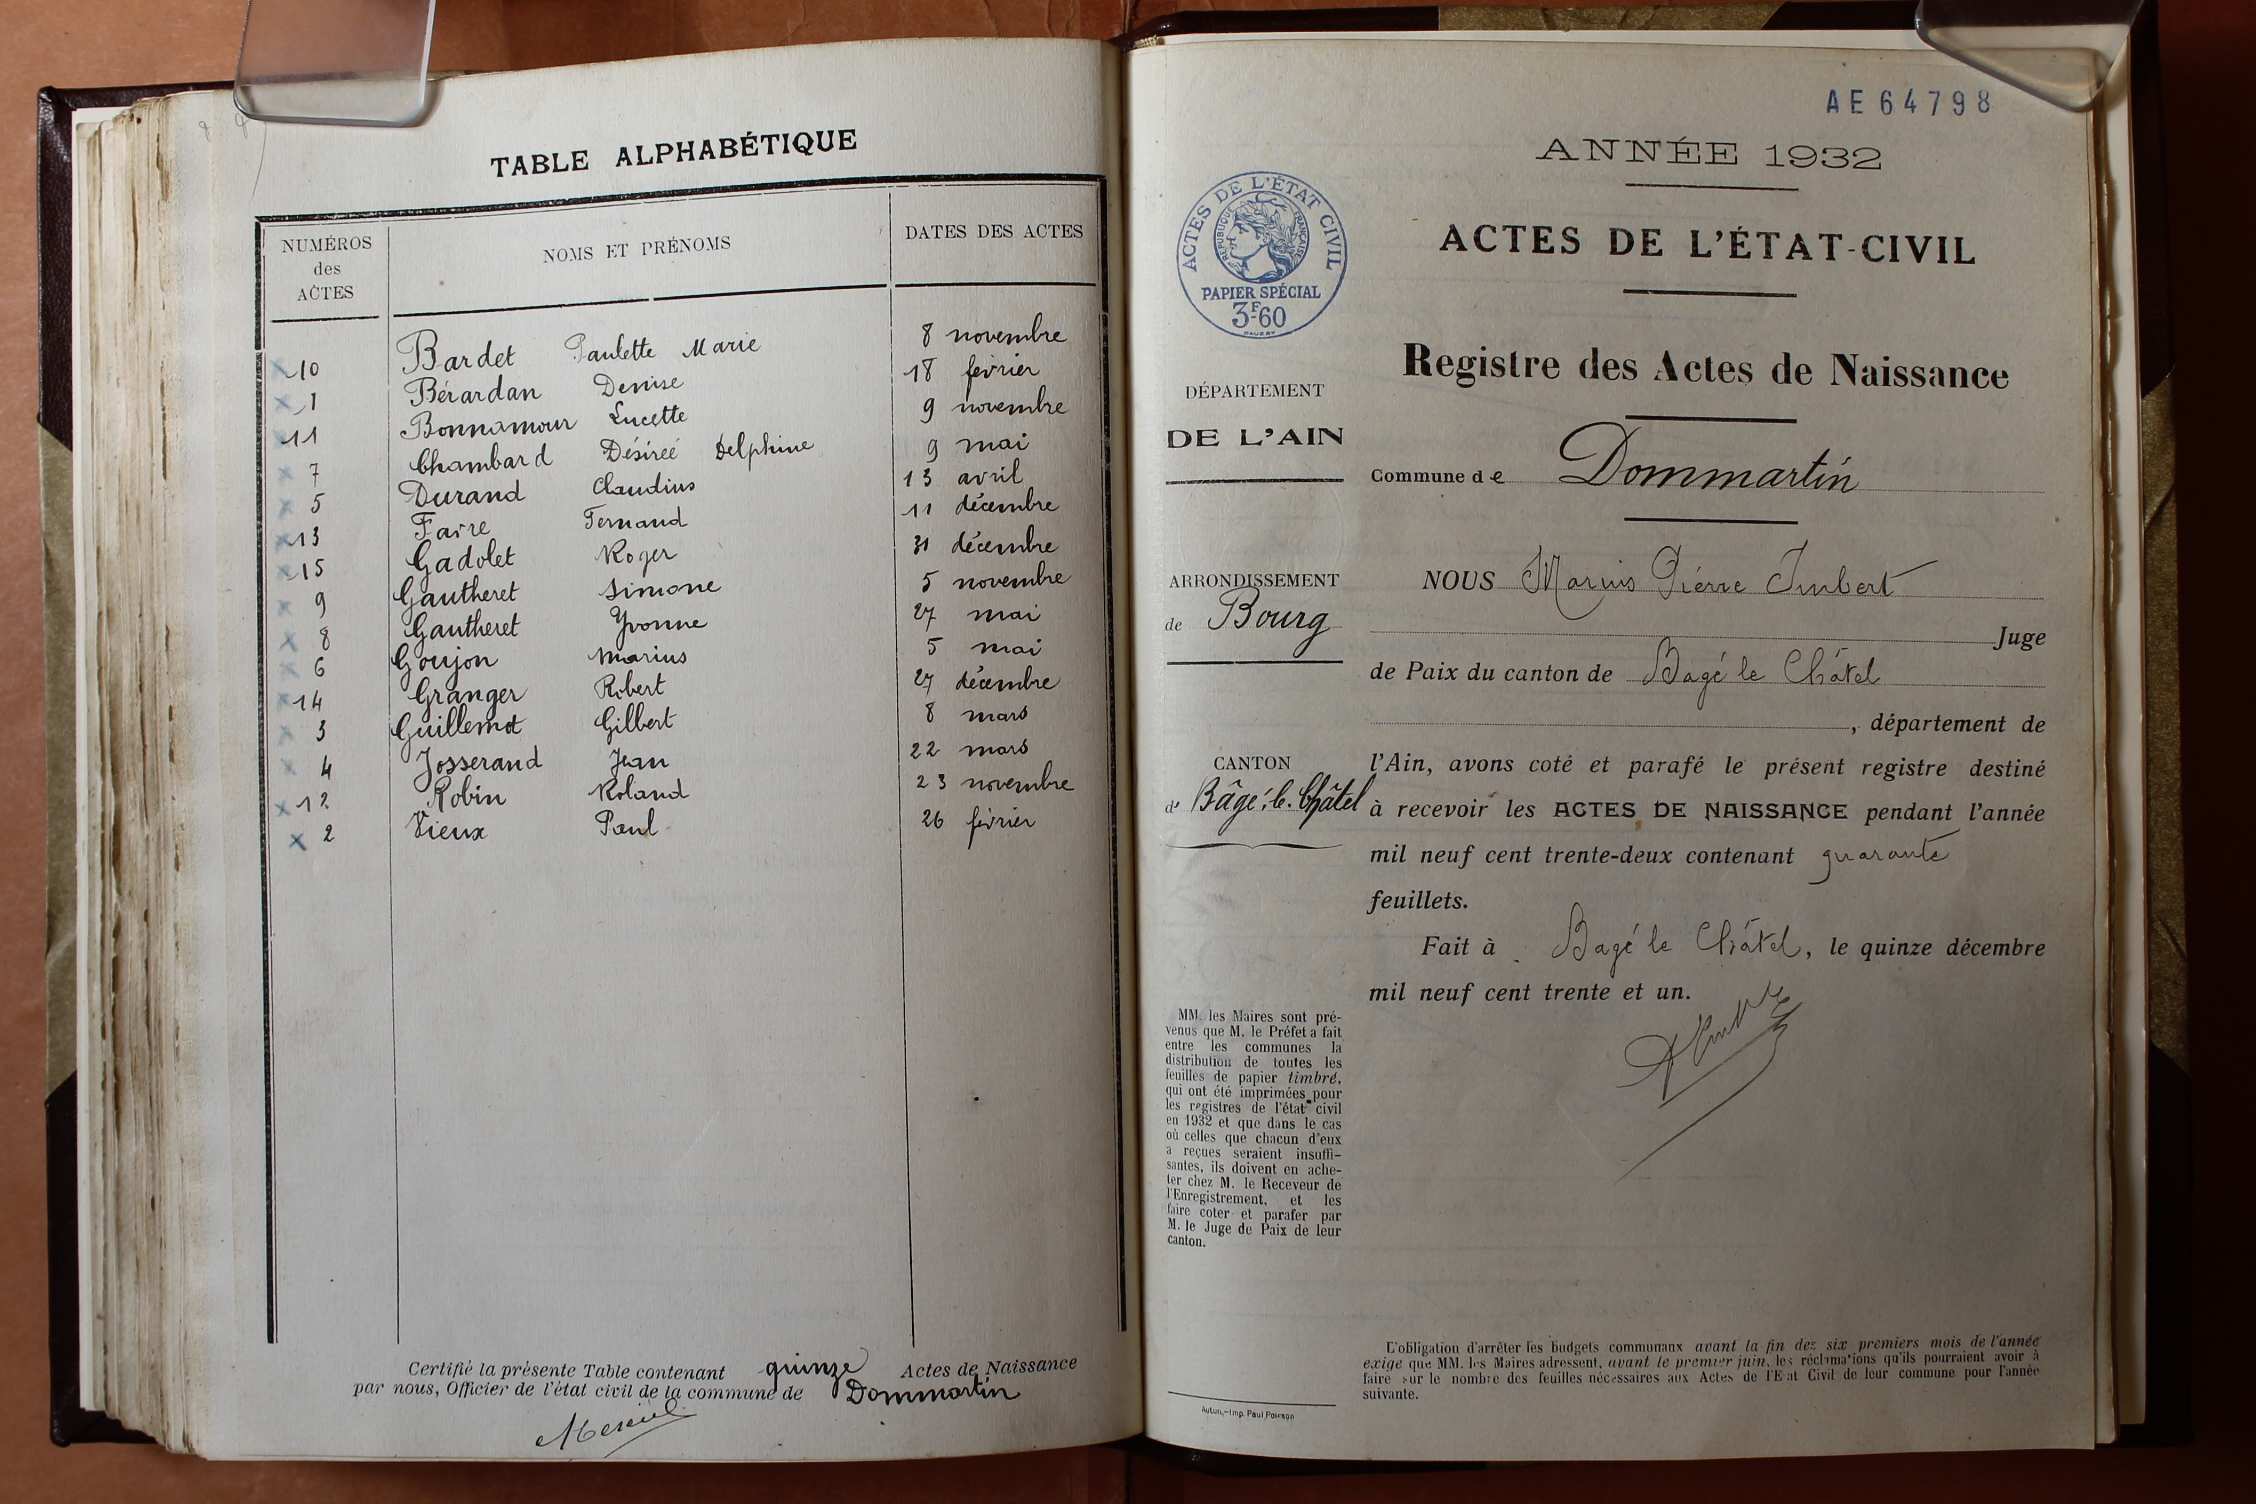 TABLE ALPHABÉTIQUE
NUMÉROS
des
ACTES
NOMS ET PRÉNOMS
DATES DES ACTES
10 Bardet Paulette Marie 8 novembre
1 Bérardan Denise 18 février
11 Bonnamour Lucette 9 novembre
7 Chambard Désirée Delphine 9 mai
5 Durand Claudius 13 avril
13 Favre Fernand 11 décembre
15 Gadolet Roger 31 décembre
9 Gautheret Simone 5 novembre
8 Gautheret Yvonne 27 mai
6 Goujon Marius 5 mai
14 Granger Robert 27 décembre
3 Guillemot Gilbert 8 mars
4 Josserand Jean 22 mars
12 Robin Roland 23 novembre
2 Vieux Paul 26 février
Certifié la présente Table contenant quinze Actes de Naissance
par nous, Officier de l'état civil de la commune de Dommartin
AE64798
ANNÉE 1932
ACTES DE L'ÉTAT CIVIL
RÉPUBLIQUE FRANÇAISE
PAPIER SPÉCIAL
3F.60
ACTES DE L'ÉTAT-CIVIL
Registre des Actes de Naissance
DÉPARTEMENT
DE L'AIN
Commune de Dommartin
ARRONDISSEMENT
de Bourg
CANTON
d' Bâgé-le-Châtel
NOUS Marius Pierre Imbert
Juge
de Paix du canton de Bagé le Châtel
, département de
l'Ain, avons coté et parafé le présent registre destiné
à recevoir les ACTES DE NAISSANCE pendant l'année
mil neuf cent trente-deux contenant quarante
feuillets.
Fait à Bagé le Châtel, le quinze décembre
mil neuf cent trente et un.
MM. les Maires sont pré-
venus que M. le Préfet a fait
entre les communes la
distribution de toutes les
feuilles de papier timbré,
qui ont été imprimées pour
les registres de l'état civil
en 1932 et que dans le cas
où celles que chacun d'eux
a reçues seraient insuffi-
santes, ils doivent en ache-
ter chez M. le Receveur de
l'Enregistrement, et les
faire coter et parafer par
M. le Juge de Paix de leur
canton.
Autun,—Imp. Paul Poirson
L'obligation d'arrêter les budgets communaux avant la fin des six premiers mois de l'année
exige que MM. les Maires adressent, avant le premier juin, les réclamations qu'ils pourraient avoir à
faire sur le nombre des feuilles nécessaires aux Actes de l'Etat Civil de leur commune pour l'année
suivante.